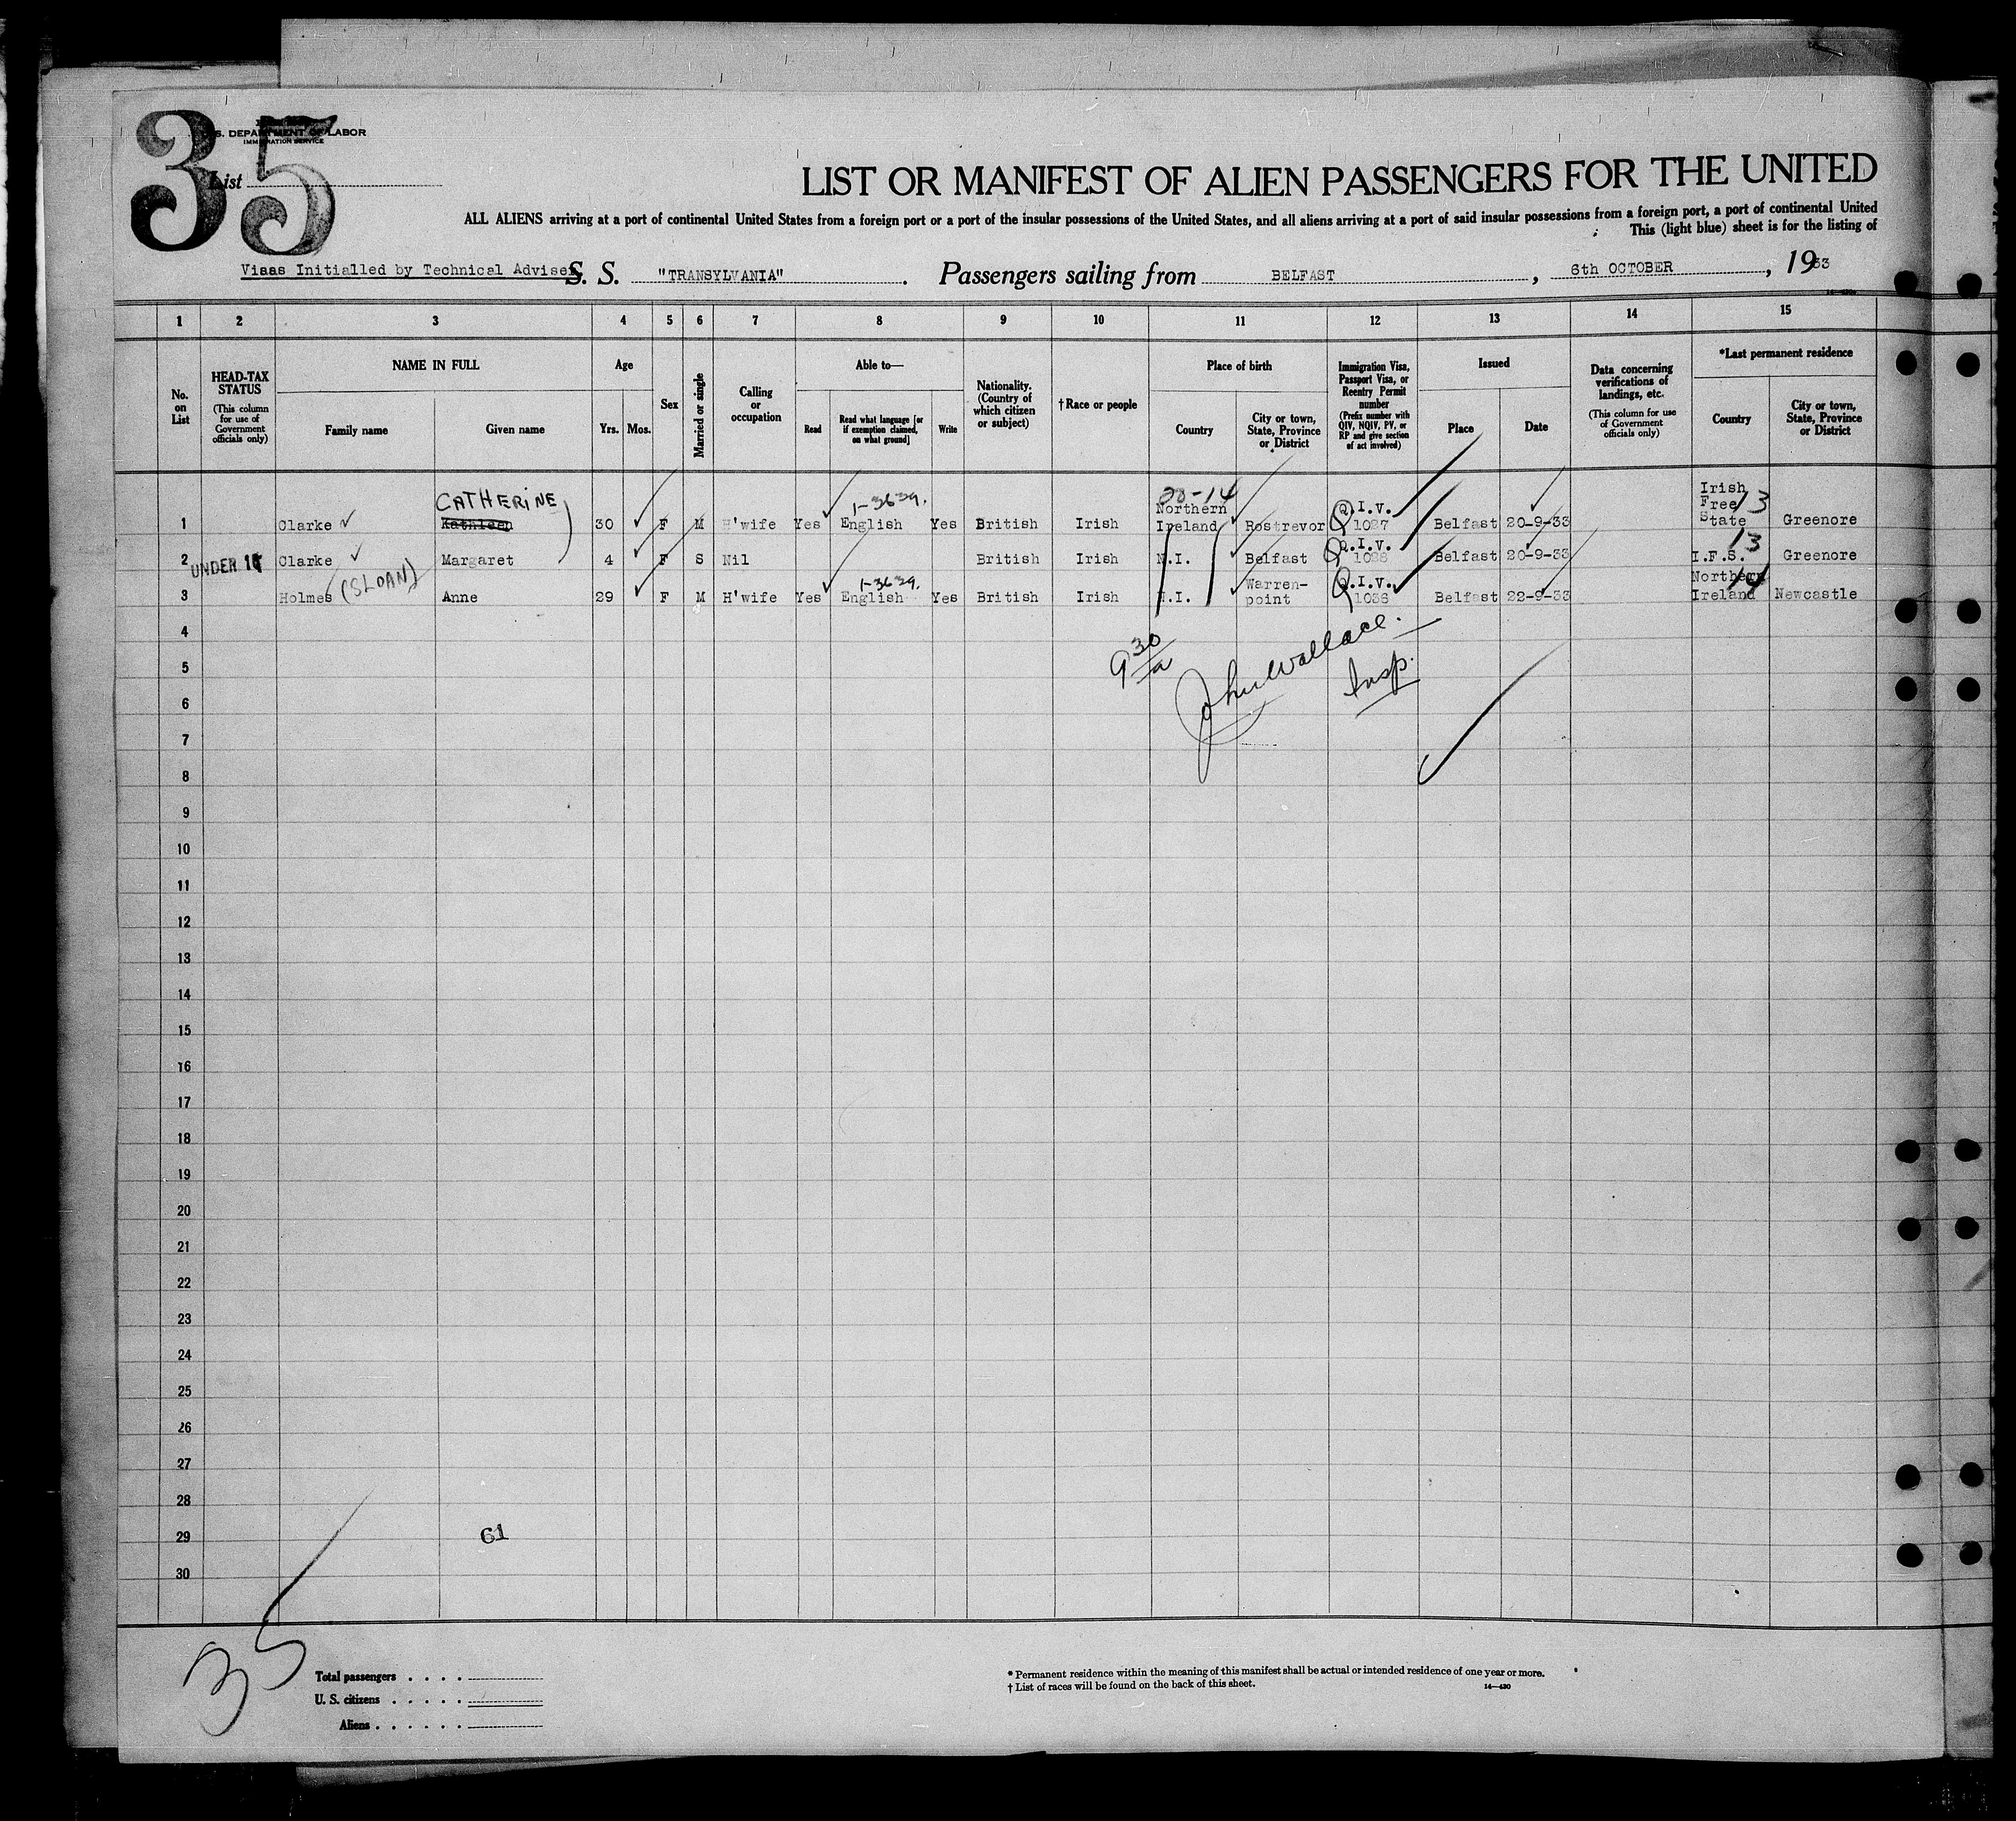 35
U.S. DEPARTMENT OF LABOR
IMMIGRATION SERVICE
List
LIST OR MANIFEST OF ALIEN PASSENGERS FOR THE UNITED
ALL ALIENS arriving at a port of continental United States from a foreign port or a port of the insular possessions of the United States, and all aliens arriving at a port of said insular possessions from a foreign port, a port of continental United
This (light blue) sheet is for the listing of
Visas Initialled by Technical Adviser S. S. "TRANSYLVANIA". Passengers sailing from BELFAST, 6th OCTOBER, 1933
1 2 3 4 5 6 7 8 9 10 11 12 13 14 15
No. on List
HEAD-TAX STATUS (This column for use of Government officials only)
NAME IN FULL
Family name Given name
Age
Yrs. Mos.
Sex
Married or single
Calling or occupation
Able to—
Read
Read what language [or if exemption claimed, on what ground]
Write
Nationality. (Country of which citizen or subject)
†Race or people
Place of birth
Country
City or town, State, Province or District
Immigration Visa, Passport Visa, or Reentry Permit number (Prefix number with QIV, NQIV, PV, or RP and give section of act involved)
Issued
Place Date
Data concerning verifications of landings, etc. (This column for use of Government officials only)
*Last permanent residence
Country
City or town, State, Province or District
CATHERINE 1-3639. 20-14
1 Clarke Kathleen 30 F M H'wife Yes English Yes British Irish Northern Ireland Rostrevor Q.I.V. 1087 Belfast 20-9-33 Irish Free State 13 Greenore
2 UNDER 16 Clarke Margaret 4 F S Nil British Irish N.I. Belfast Q.I.V. 1088 Belfast 20-9-33 I.F.S. 13 Greenore
1-3639.
3 Holmes (SLOAN) Anne 29 F M H'wife Yes English Yes British Irish N.I. Warren-point Q.I.V. 1038 Belfast 22-9-33 Northern Ireland 14 Newcastle
4
930/a John Wallace.
5
Insp.
6
7
8
9
10
11
12
13
14
15
16
17
18
19
20
21
22
23
24
25
26
27
28
29
61
30
35
Total passengers . . . .
U. S. citizens . . . . .
Aliens . . . . . .
* Permanent residence within the meaning of this manifest shall be actual or intended residence of one year or more.
† List of races will be found on the back of this sheet. 14—430